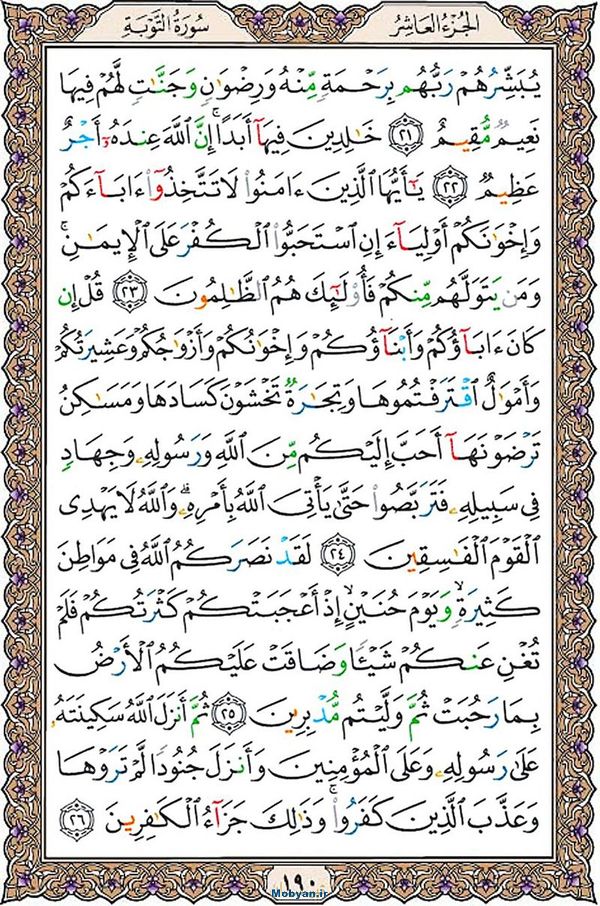 الجزء العاشر
سورة التوبة
يُبَشِّرُهُمْ رَبُّهُم بِرَحْمَةٍ مِّنْهُ وَرِضْوَٰنٍ وَجَنَّٰتٍ لَّهُمْ فِيهَا
نَعِيمٌ مُّقِيمٌ ٢١ خَٰلِدِينَ فِيهَآ أَبَدًا ۚ إِنَّ ٱللَّهَ عِندَهُۥٓ أَجْرٌ
عَظِيمٌ ٢٢ يَٰٓأَيُّهَا ٱلَّذِينَ ءَامَنُوا۟ لَا تَتَّخِذُوٓا۟ ءَابَآءَكُمْ
وَإِخْوَٰنَكُمْ أَوْلِيَآءَ إِنِ ٱسْتَحَبُّوا۟ ٱلْكُفْرَ عَلَى ٱلْإِيمَٰنِ ۚ
وَمَن يَتَوَلَّهُم مِّنكُمْ فَأُو۟لَٰٓئِكَ هُمُ ٱلظَّٰلِمُونَ ٢٣ قُلْ إِن
كَانَ ءَابَآؤُكُمْ وَأَبْنَآؤُكُمْ وَإِخْوَٰنُكُمْ وَأَزْوَٰجُكُمْ وَعَشِيرَتُكُمْ
وَأَمْوَٰلٌ ٱقْتَرَفْتُمُوهَا وَتِجَٰرَةٌ تَخْشَوْنَ كَسَادَهَا وَمَسَٰكِنُ
تَرْضَوْنَهَآ أَحَبَّ إِلَيْكُم مِّنَ ٱللَّهِ وَرَسُولِهِۦ وَجِهَادٍ
فِى سَبِيلِهِۦ فَتَرَبَّصُوا۟ حَتَّىٰ يَأْتِىَ ٱللَّهُ بِأَمْرِهِۦ ۗ وَٱللَّهُ لَا يَهْدِى
ٱلْقَوْمَ ٱلْفَٰسِقِينَ ٢٤ لَقَدْ نَصَرَكُمُ ٱللَّهُ فِى مَوَاطِنَ
كَثِيرَةٍ ۙ وَيَوْمَ حُنَيْنٍ ۙ إِذْ أَعْجَبَتْكُمْ كَثْرَتُكُمْ فَلَمْ
تُغْنِ عَنكُمْ شَيْـًٔا وَضَاقَتْ عَلَيْكُمُ ٱلْأَرْضُ
بِمَا رَحُبَتْ ثُمَّ وَلَّيْتُم مُّدْبِرِينَ ٢٥ ثُمَّ أَنزَلَ ٱللَّهُ سَكِينَتَهُۥ
عَلَىٰ رَسُولِهِۦ وَعَلَى ٱلْمُؤْمِنِينَ وَأَنزَلَ جُنُودًا لَّمْ تَرَوْهَا
وَعَذَّبَ ٱلَّذِينَ كَفَرُوا۟ ۚ وَذَٰلِكَ جَزَآءُ ٱلْكَٰفِرِينَ ٢٦
١٩٠
Mobyan.ir